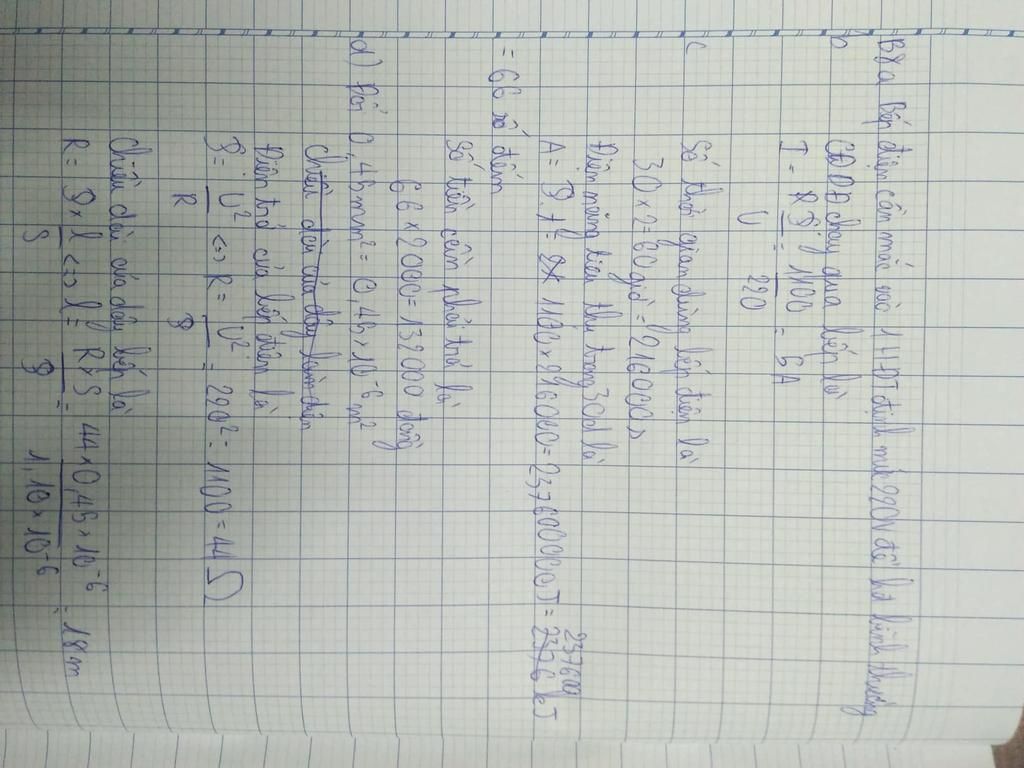 B8a Bếp điện cần mắc vào 1 HĐT định mức 220V để hđ bình thường
b CĐDĐ chạy qua bếp là
I = P / U = 1100 / 220 = 5A
c Số thời gian dùng bếp điện là
30 x 2 = 60 giờ = 216000s
Điện năng tiêu thụ trong 30d là
A = P.t = 1100 x 216000 = 237600000J = 237600 kJ
= 66 số đếm
Số tiền cần phải trả là
66 x 2000 = 132000 đồng
d) Đổi 0,45mm² = 0,45 x 10⁻⁶ m²
Chiều dài của dây làm điện
Điện trở của bếp điện là
P = U² / R <=> R = U² / P = 220² : 1100 = 44 Ω
Chiều dài của dây bếp là
R = ρ x l / S <=> l = R x S / ρ = 44 x 0,45 x 10⁻⁶ / 1,10 x 10⁻⁶ = 18m